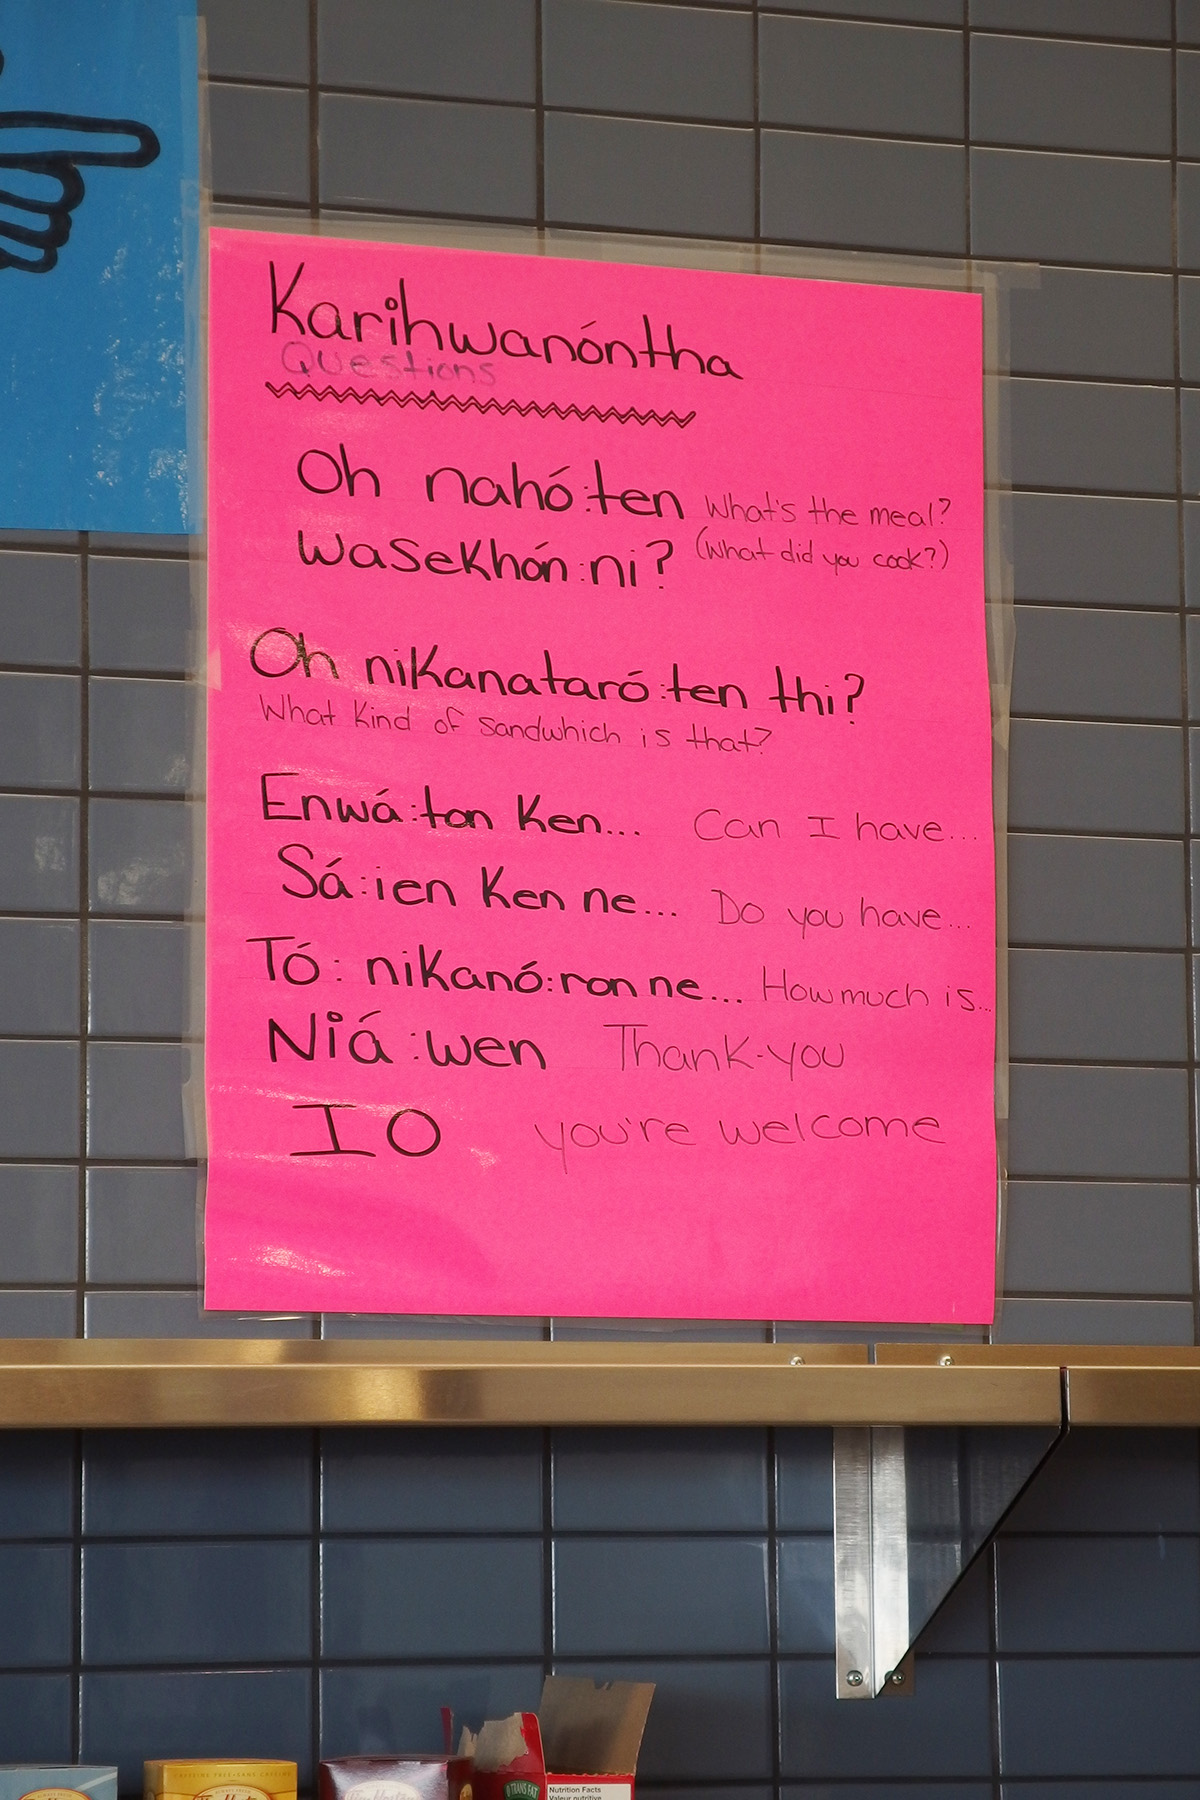 Karihwanóntha
Questions
Oh nahó:ten What's the meal?
wasekhón:ni? (What did you cook?)
Oh nikanataró:ten thi?
What kind of sandwhich is that?
Enwá:ton ken... Can I have...
Sá:ien ken ne... Do you have...
Tó: nikanó:ron ne... How much is...
Niá:wen Thank-you
IO you're welcome
0 TRANS FAT
Nutrition Facts
Valeur nutritive